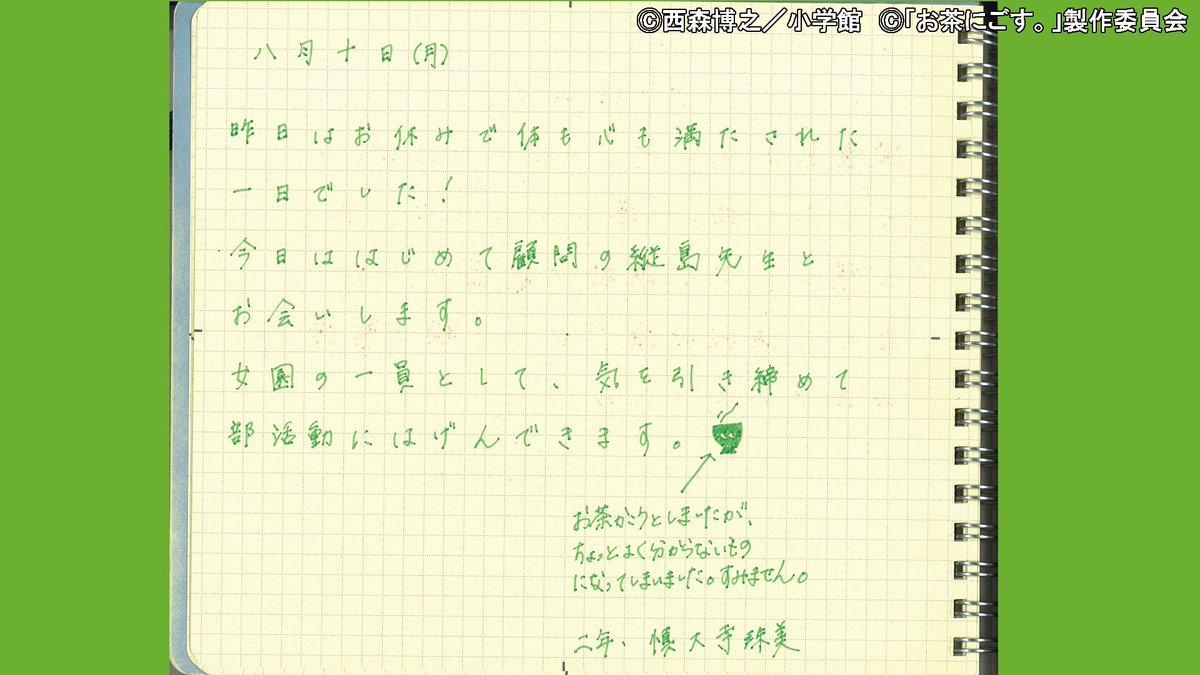 ©西森博之／小学館 ©「お茶にごす。」製作委員会
八月十日(月)
昨日はお休みで体も心も満たされた
一日でした！
今日ははじめて顧問の縦島先生と
お会いします。
女園の一員として、気を引き締めて
部活動にはげんできます。
お茶かこうとしましたが、
ちょっとよく分からないもの
になってしまいました。すみません。
二年、慎大寺珠美